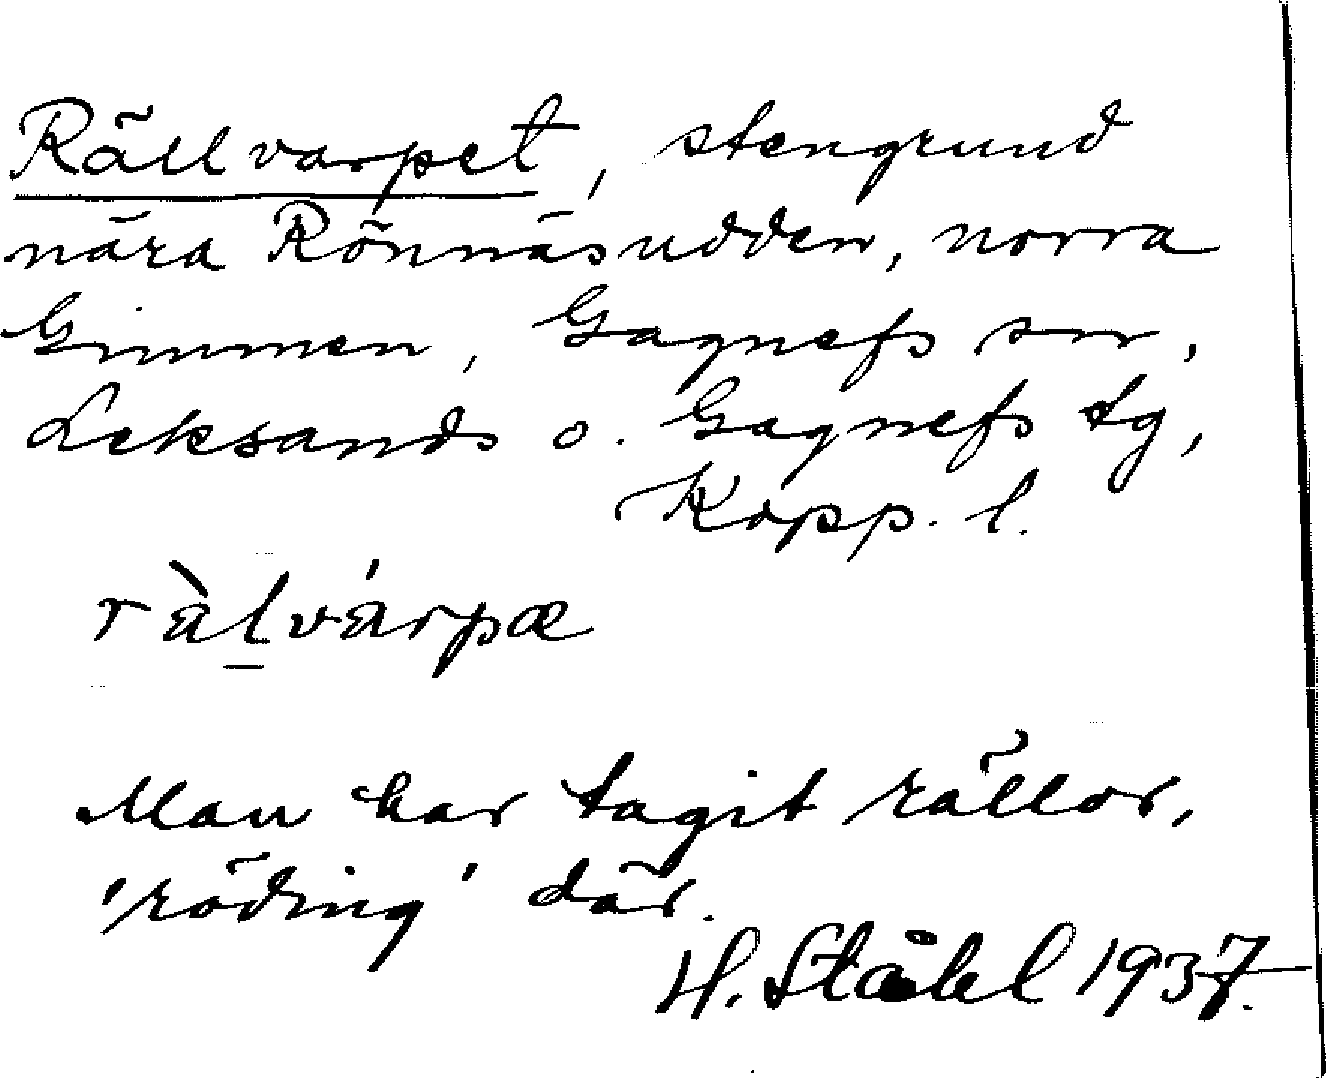 Rällvarpet, stengrund
nära Rönnäsudden, norra
Gimmen, Gagnefs sn,
Leksands o. Gagnefs tg,
Kopp. l.
ràlvárpæ
Man har tagit rällor,
'röding' där.
H. Ståhl 1937.